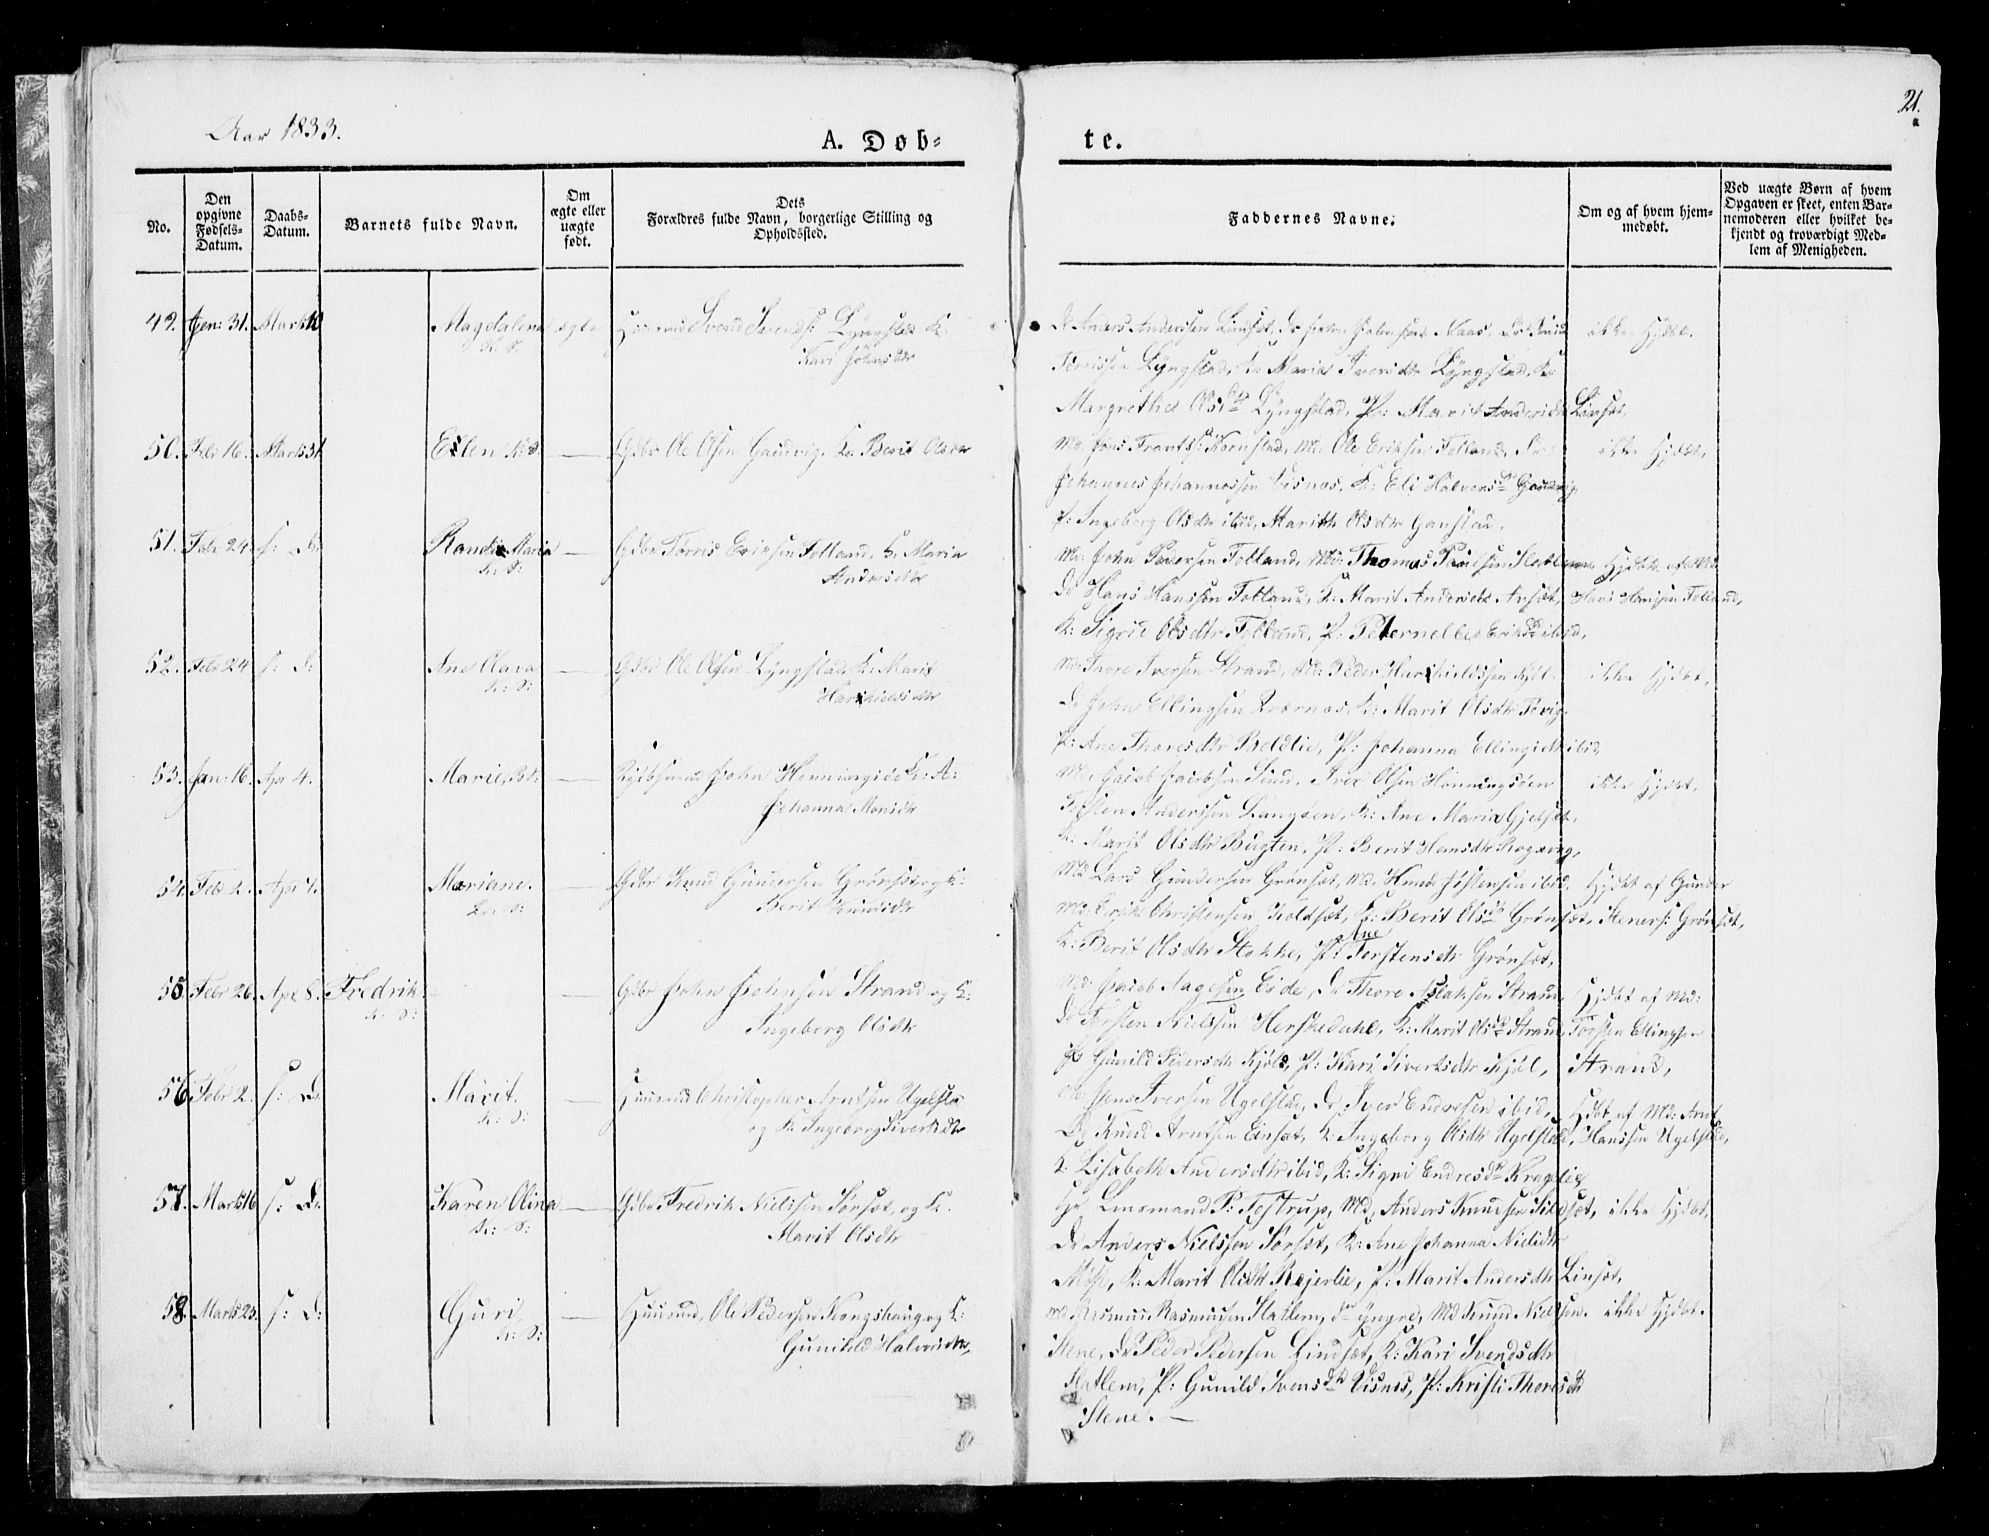 21.
Aar 1833.
A. Døb- te.
No.
Den opgivne Fødsels-Datum.
Daabs-Datum.
Barnets fulde Navn.
Om ægte eller uægte født.
Dets Forældres fulde Navn, borgerlige Stilling og Opholdssted.
Faddernes Navne.
Om og af hvem hjemmedøbt.
Ved uægte Børn af hvem Opgaven er skeet, enten Barnemoderen eller hvilket bekjendt og troværdigt Medlem af Menigheden.
49. Jan: 31. Marts 10 Magdalena ægte Svend Svends: Lyngstad K:
Kari Johnsdtr
Anders Anderssen Linset, Naas,
Lyngstad, Maria Iversdtr Lyngstad,
Margrethe Olsdtr Lyngstad, P: Marit Andersdtr Linset,
ikke Hjdbt.
50. Feb 16. Marts 31 Ellen K: S: — Gdbr Ole Olsen Gaudvig, K: Berit Olsdtr
Md. Jens Frants: Kornstad, Md: Ole Eriksen Folland,
Johannes Johannessen Visnes, K: Eli Halvorsdtr Gaudvig,
P: Ingeborg Olsdtr ibid, Marith Olsdtr Gaustad,
ikke Hjdbt,
51. Febr 24. s: D: Randi Maria K: S: — Gdbr Torris Eriksen Folland, K: Maria
Andersdtr
Md: John Pedersen Folland, Md: Thomas Poulsen Flatlem
D: Hans Hanssen Folland, K: Marit Andersdtr
K: Sigrid Olsdtr Folland, P: Peternelle Eriksd ibid,
Hjdbt af Md.
Hans Hanssen Folland,
52. Febr 24 s: D: Ane Olava K: S: — Gdbr Ole Olsen Lyngstad, K: Marit
Harkielsdtr
Md: Thore Iversen Strand, Md: Peder Harkieldssen Kjøl
D: John Ellingsen Qværnæs, K: Marit Olsdtr
P: Ane Thoresdtr Boldlie, P: Johanna Ellingsdtr ibid
ikke Hjdbt,
53. Jan: 16. Apr 4. Marie, — John Henningsøe K: A:
Johanna Monsdtr
Md: Jacob Jacobsen Sund, Iver Olsen Henningsøen
Torsten Anderssen Langøen, K: Ane Maria Gjelset,
K: Marit Olsdtr Bugten, P: Berit Hansdtr
ikke Hjdbt,
54. Febr 2. Apr 7. Mariane. — Gdbr Knud Gundersen Grønset og K:
Berit Knudsdtr
Md Lars Gundersen Grønset, Md. Knud Jostensen ibid,
Md: Christensen Koldset, K: Berit Olsdtr Grønset,
K: Berit Olsdtr Stokke, P: Ane Torstensdtr Grønset,
Hjdbt af Gunder
Steners: Grønset,
55 Febr 26. Apr 8. Fredrik K: S: — Gdbr John Johnsen Strand og K:
Ingeborg Olsdtr
Md: Jacob Aagesen Eide, D: Thore Aslaksen Strand,
D: Torsten Nielssen Herskedahl, K: Marit Olsdtr Strand
P: Gunild Pedersdtr Kjøl, P: Kari Sivertsdtr Kjøl,
Hjdbt af Md:
Torsten Ellingsen
Strand,
56 Febr 2. s: D: Marit. K: S: — Christopher Arntsen Ugelsta
og K: Ingeborg Sivertsdtr
Md: Jens Iversen Ugelstad, D: Iver Endresen ibid,
D: Knud Arntsen Einset, K: Ingeborg Olsdtr Ugelstad,
K: Lisabeth Andersdtr ibid, K: Sigri Endresdtr Kraglie
Hdbt af Md: Arnt
Hanssen Ugelstad,
57. Marts 16 s: D: Karen Olina K: S: — Gdbr Fredrik Nielssen Sørset, og K:
Marit Olsdtr
Hr Lensmand P: Tostrup, Md, Anders Knudsen Sildset,
D: Anders Nielssen Sørset, K: Ane Johanna Nielsdtr
K: Marit Olsdtr Røjerlie, P: Marit Andersdtr Linset,
ikke Hjdbt,
58. Marts 25. s: D: Guri, K: S: — Huusmd, Ole Pedersen Kongshaug og K:
Gunild Halvorsdtr,
Md Rasmus Rasmussen Flatlem, d. yngre, Md Knud Nielsen
Stene, D: Peder Pedersen Lindset, K: Kari Svendsdtr
Flatlem, P: Gunild Svensdtr Visnes, P: Kristi Thoresdtr
Stene. —
ikke Hjdbt.